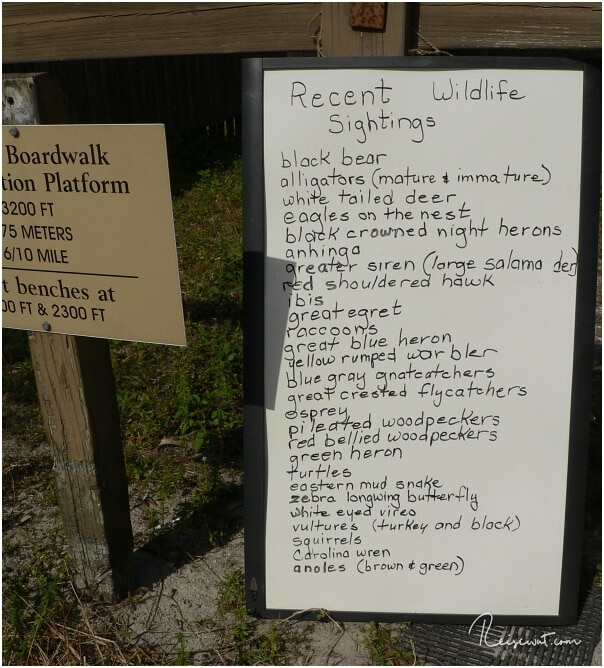 Boardwalk
tion Platform
3200 FT
75 METERS
6/10 MILE
t benches at
00 FT & 2300 FT
Recent Wildlife
Sightings
black bear
alligators (mature & immature)
white tailed deer
eagles on the nest
black crowned night herons
anhinga
greater siren (large salamander)
red shouldered hawk
ibis
great egret
raccoons
great blue heron
yellow rumped warbler
blue gray gnatcatchers
great crested flycatchers
osprey
pileated woodpeckers
red bellied woodpeckers
green heron
turtles
eastern mud snake
zebra longwing butterfly
white eyed vireo
vultures (turkey and black)
squirrels
Carolina wren
anoles (brown & green)
Reisewut.com